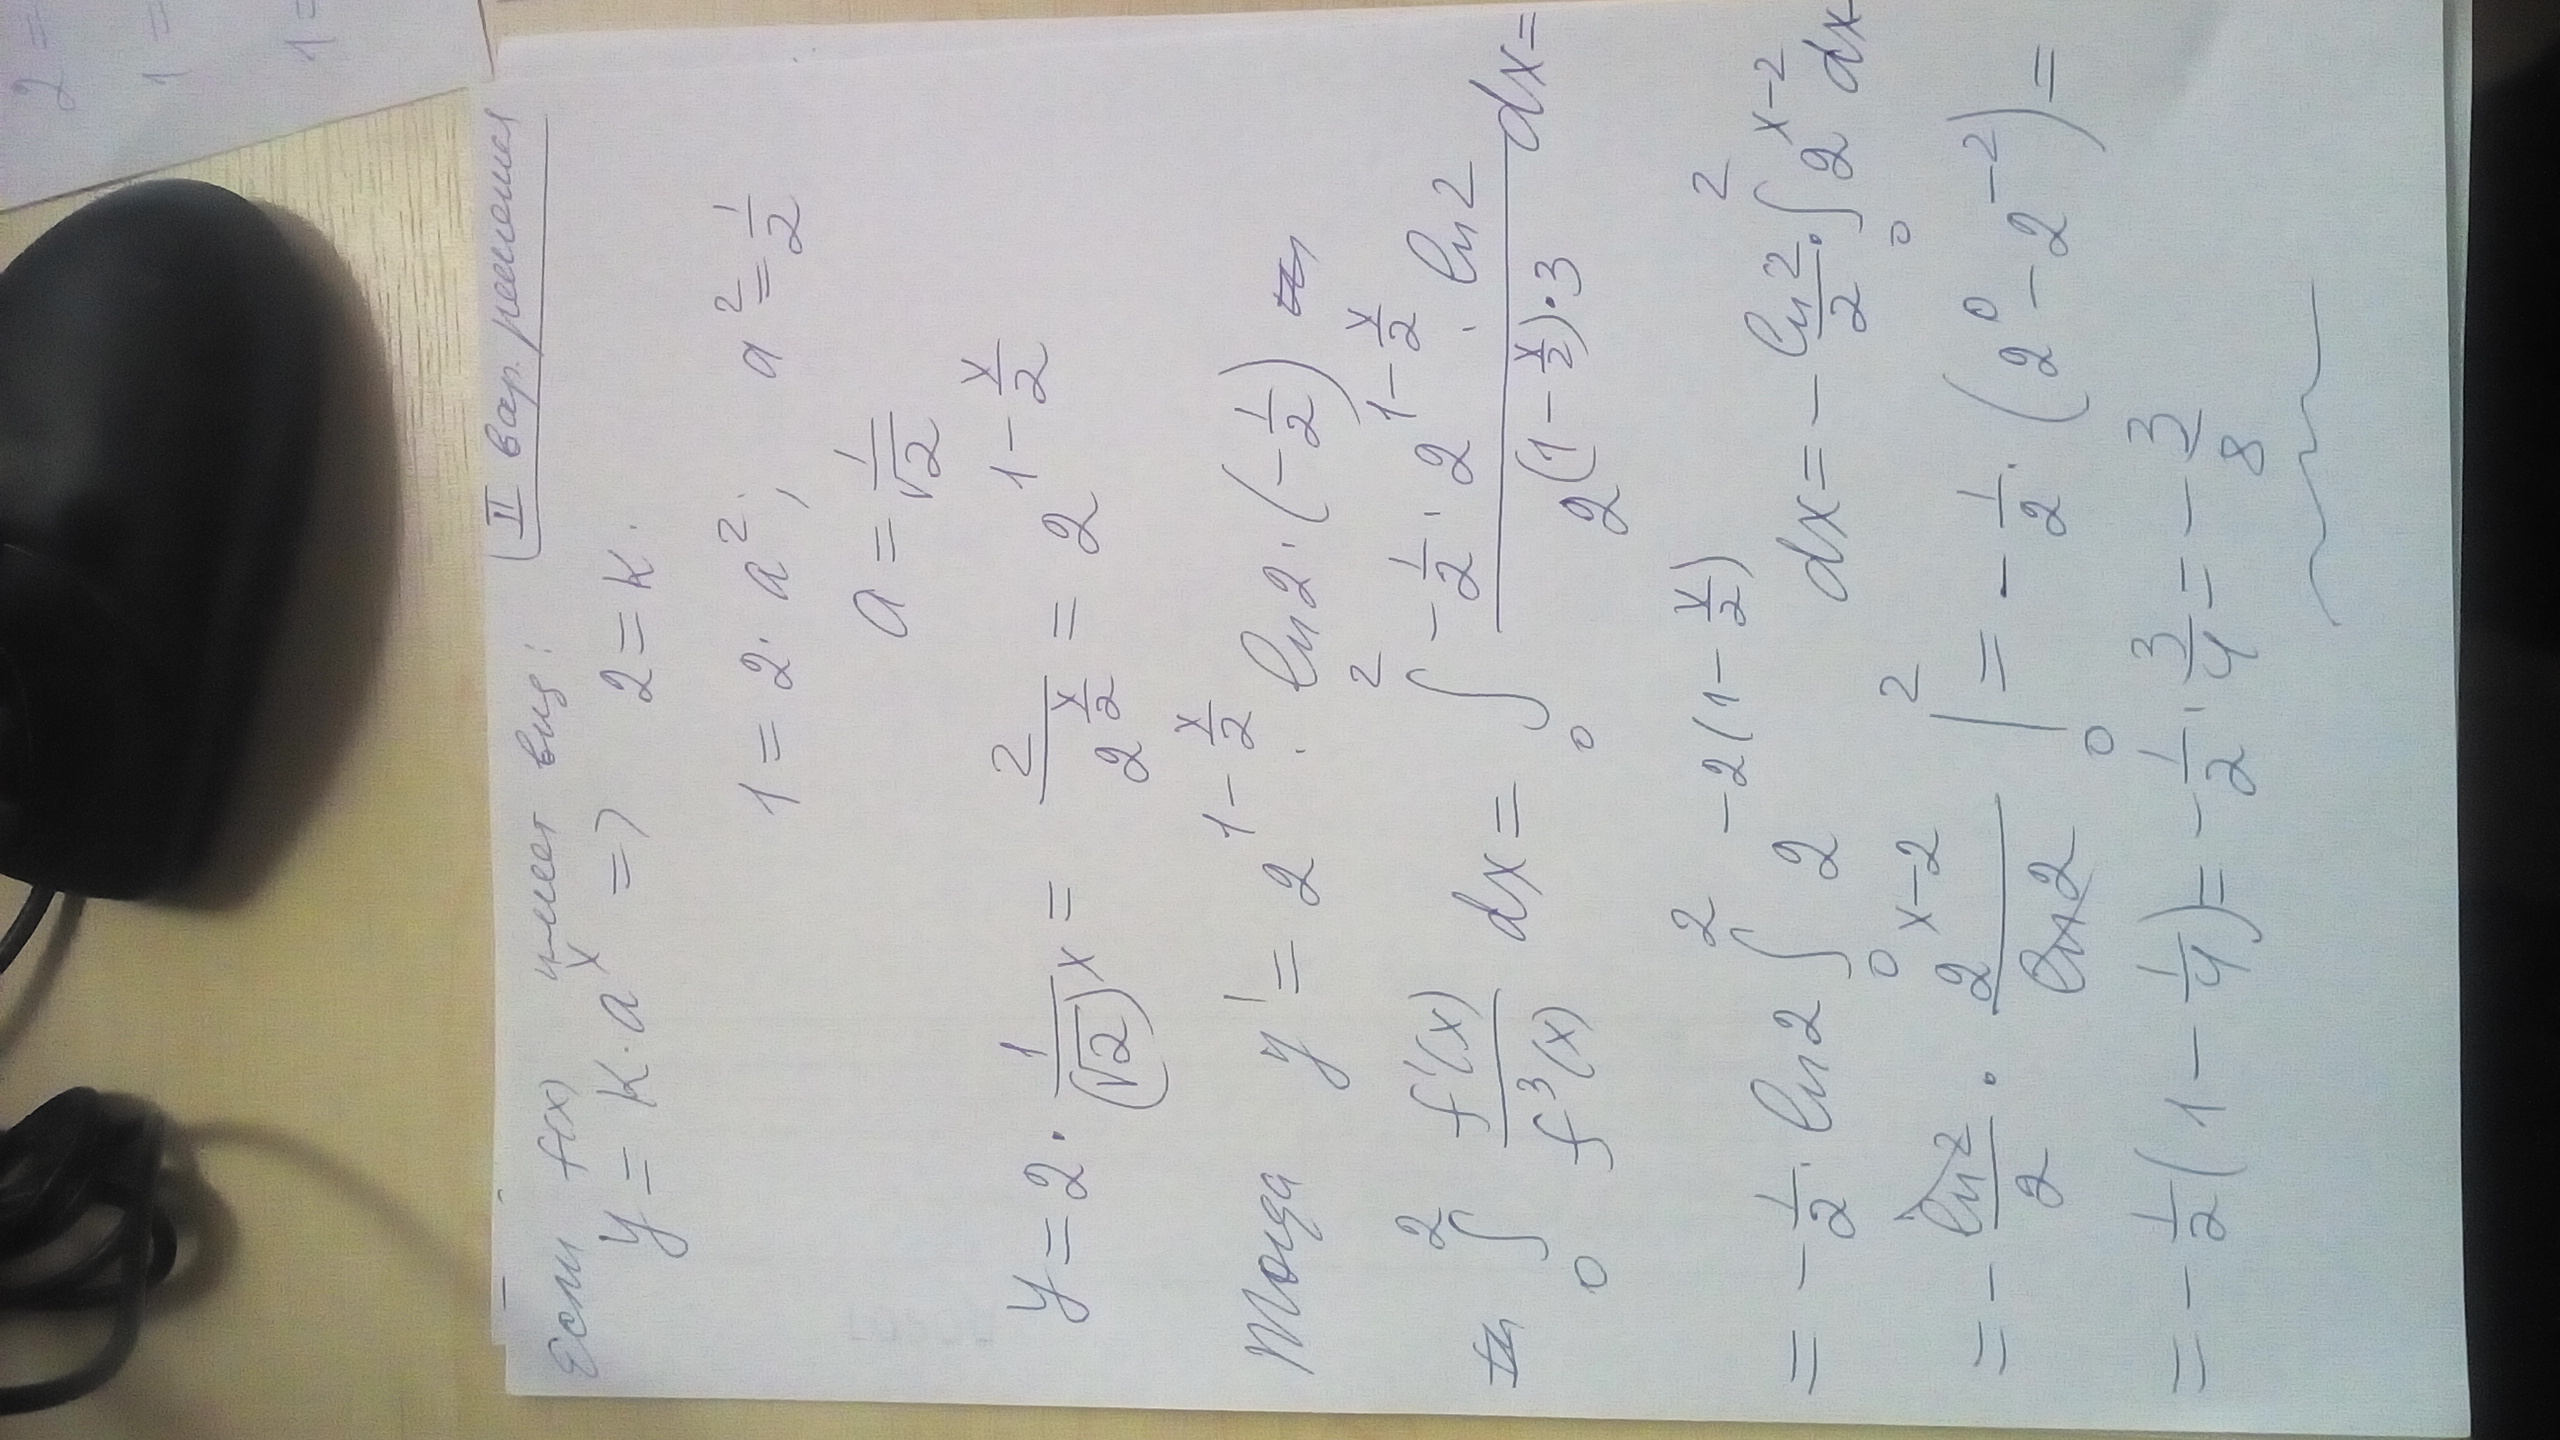 II вар. решения
Если f(x) имеет вид:
y = k · a^x => 2 = k.
1 = 2 · a^2; a^2 = 1/2
a = 1/√2
y = 2 · 1/(√2)^x = 2/2^(x/2) = 2^(1 - x/2)
Тогда y' = 2^(1 - x/2) · ln 2 · (-1/2)
∫_0^2 f'(x)/f^3(x) dx = ∫_0^2 (-1/2 · 2^(1 - x/2) · ln 2)/(2^((1 - x/2) · 3)) dx =
= -1/2 · ln 2 ∫_0^2 2^(-2(1 - x/2)) dx = - ln 2/2 · ∫_0^2 2^(x-2) dx
= - ln 2/2 · 2^(x-2)/ln 2 |_0^2 = -1/2 · (2^0 - 2^(-2)) =
= -1/2 (1 - 1/4) = -1/2 · 3/4 = -3/8
2 =
1 =
1 =